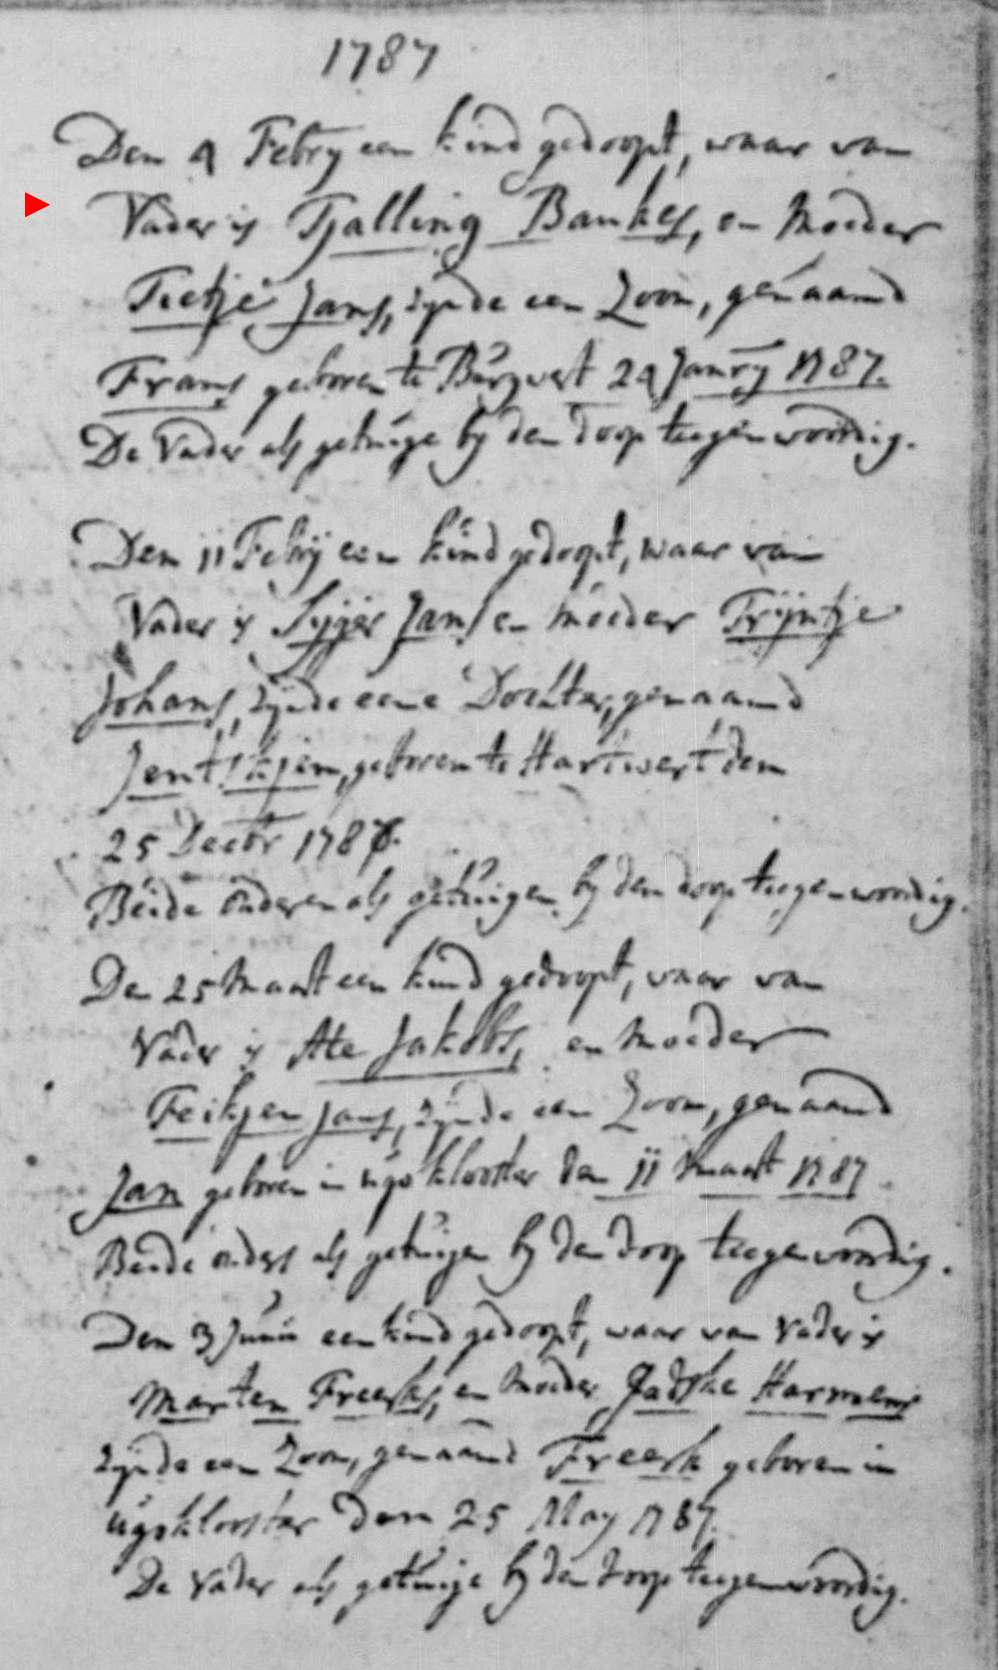 1787
Den 4 Febry een kind gedoopt, waar van
Vader is Tjalling Baukes, en Moeder
Tietje Jans, zynde een Zoon, genaamd
Frans geboren te Burgwert 24 Janry 1787.
De Vader als getuige by den doop tegenwoordig.
Den 11 Febry een kind gedoopt, waar van
Vader is Sijger Jans en Moeder Trijntje
Johans, zynde eene Dochter, genaamd
Jentskjen, geboren te Hartwert den
25 Decbr 1786.
Beide ouderen als getuigen by den doop tegenwoordig.
Den 25 Maart een kind gedoopt, waar van
Vader is Ate Jakobs, en Moeder
Feikjen Jans, zynde een Zoon, genaamd
Jan geboren in ugoklooster den 11 Maart 1787.
Beide ouders als getuigen by den doop tegenwoordig.
Den 3 Junii een kind gedoopt, waar van Vader is
Marten Freerks, en Moeder Jadske Harmens
zynde een Zoon, genaamd Freerk geboren in
ugoklooster den 25 May 1787.
De Vader als getuige by den doop tegenwoordig.